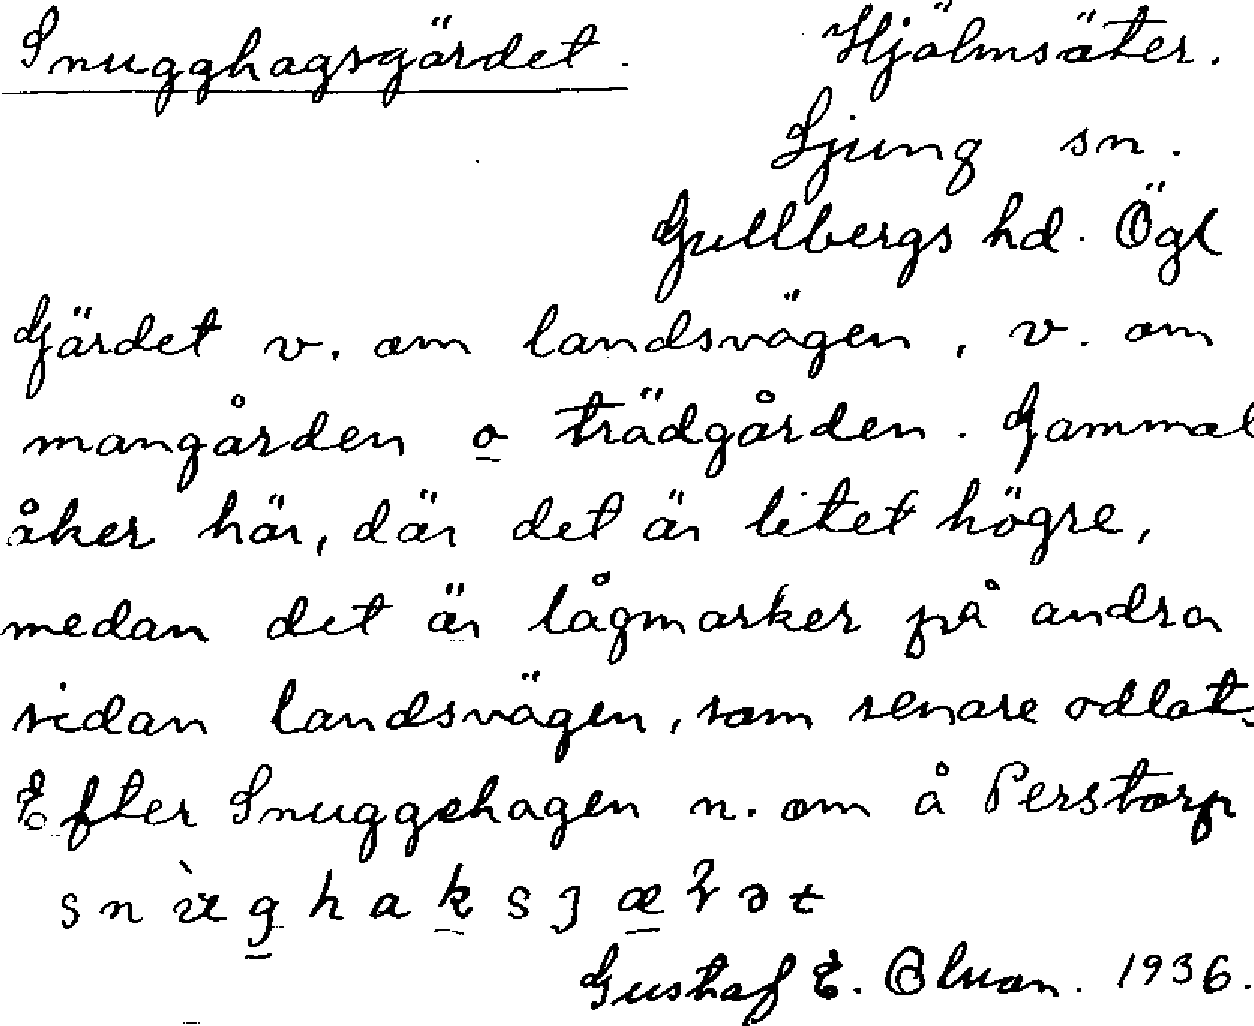 Snugghagsgärdet. Hjälmsäter.
Ljung sn.
Gullbergs hd. Ögl
Gärdet v. om landsvägen, v. om
mangården o trädgården. Gammal
åker här, där det är litet högre,
medan det är lågmarker på andra
sidan landsvägen, som senare odlats.
Efter Snuggehagen n. om å Perstorp
Gustaf E. Olson. 1936.